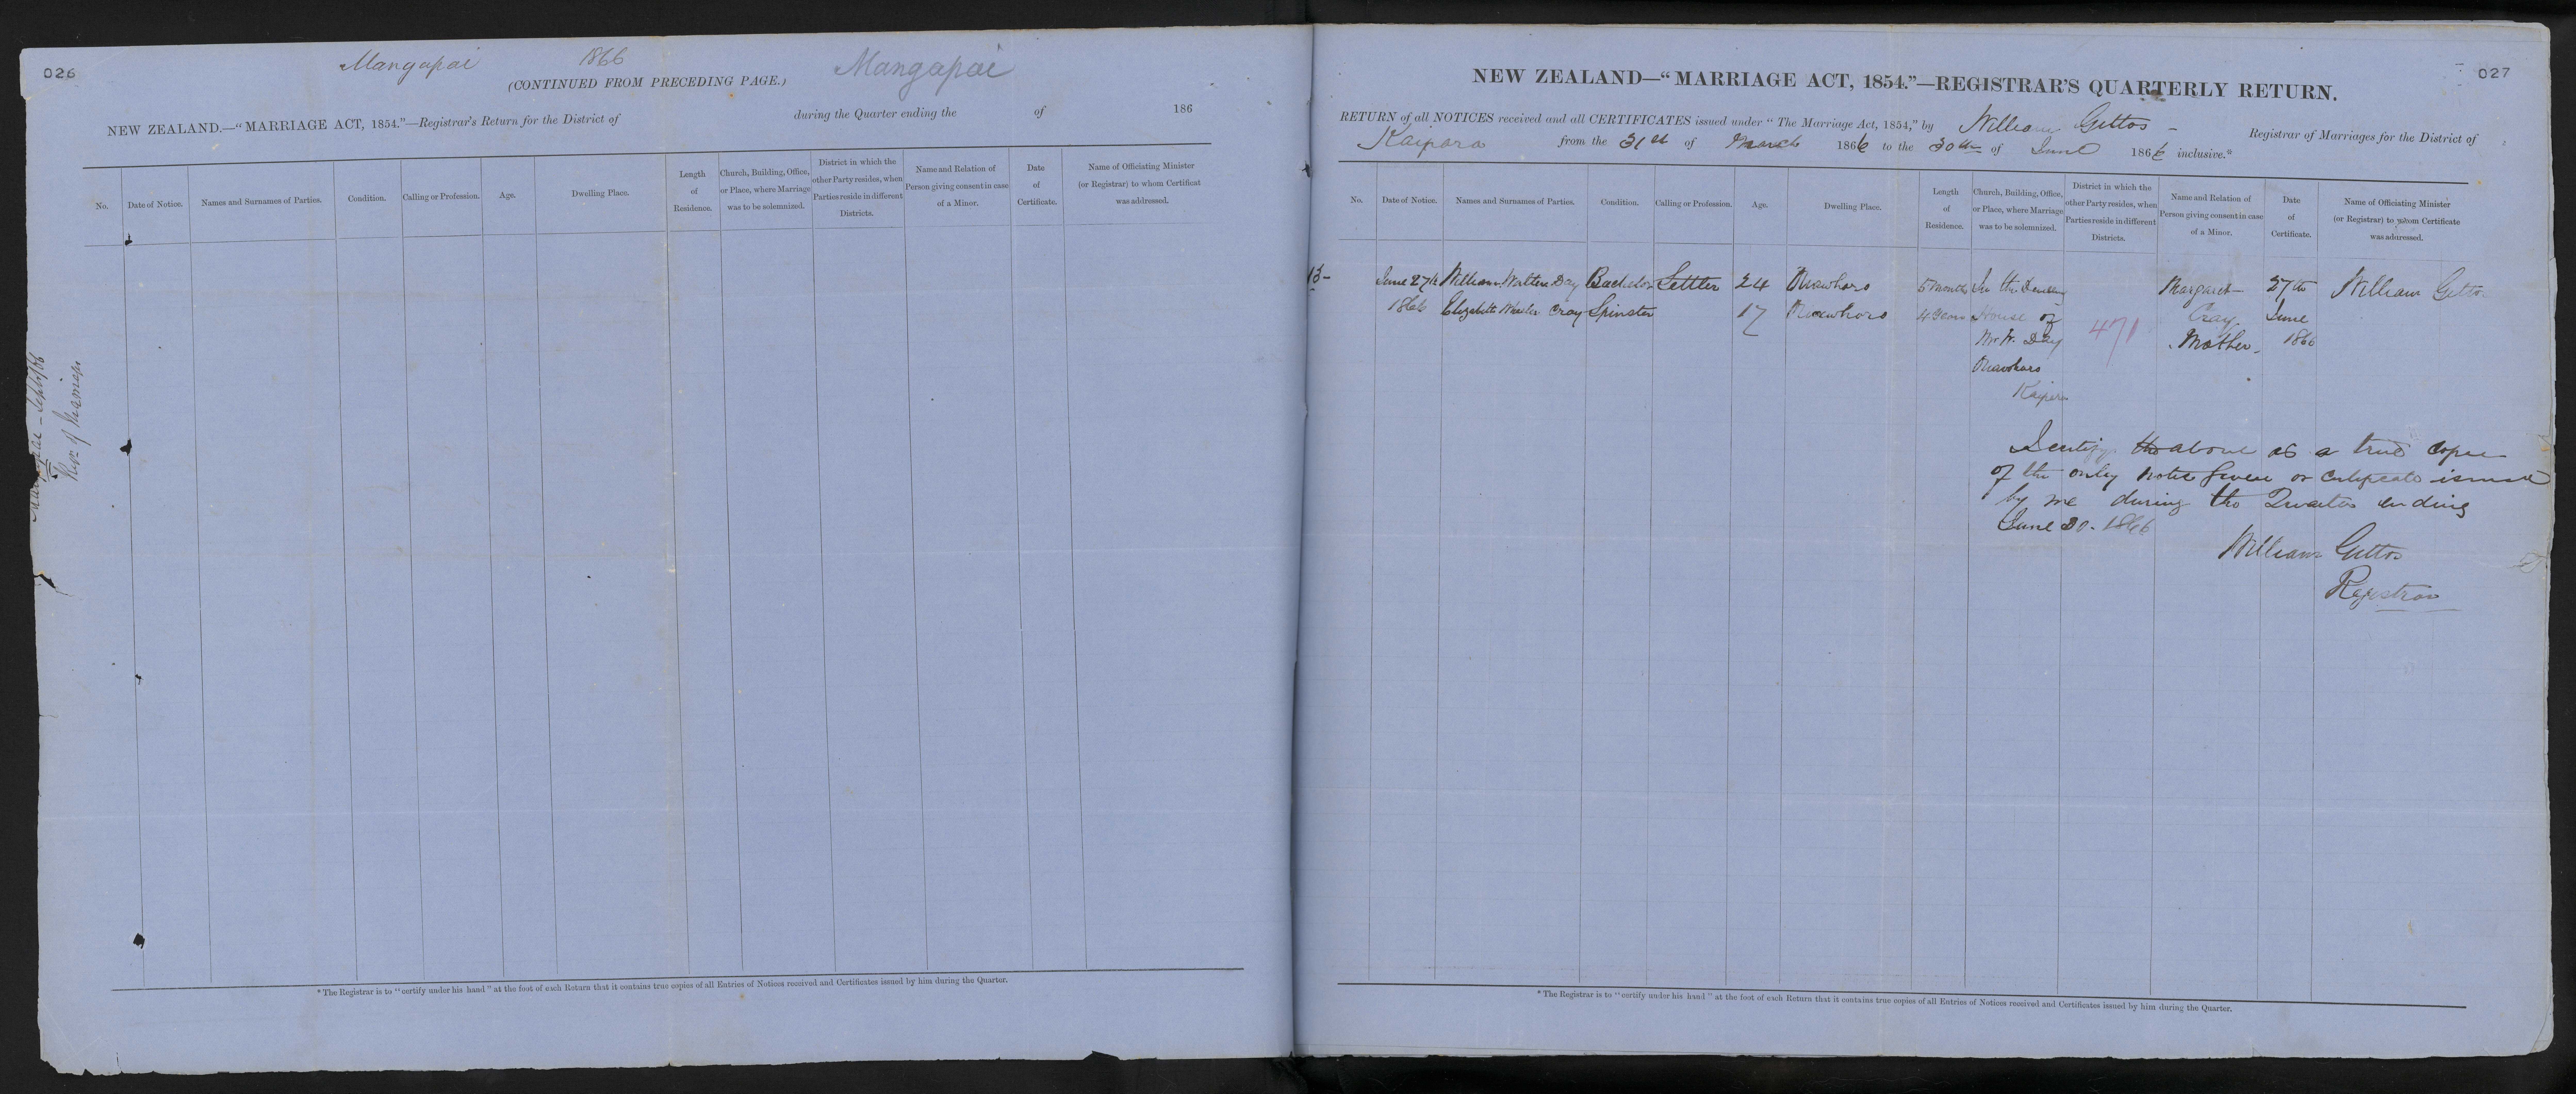 026
Mangapai 1866 Mangapai
(CONTINUED FROM PRECEDING PAGE.)
NEW ZEALAND.—“MARRIAGE ACT, 1854.”—Registrar's Return for the District of during the Quarter ending the of 186
No.
Date of Notice.
Names and Surnames of Parties.
Condition.
Calling or Profession.
Age.
Dwelling Place.
Length
of
Residence.
Church, Building, Office,
or Place, where Marriage
was to be solemnized.
District in which the
other Party resides, when
Parties reside in different
Districts.
Name and Relation of
Person giving consent in case
of a Minor.
Date
of
Certificate.
Name of Officiating Minister
(or Registrar) to whom Certificat
was addressed.
* The Registrar is to “certify under his hand” at the foot of each Return that it contains true copies of all Entries of Notices received and Certificates issued by him during the Quarter.
027
NEW ZEALAND—“MARRIAGE ACT, 1854.”—REGISTRAR'S QUARTERLY RETURN.
RETURN of all NOTICES received and all CERTIFICATES issued under “The Marriage Act, 1854,” by William Gittos - Registrar of Marriages for the District of
Kaipara from the 31st of March 1866 to the 30th of June 1866 inclusive.*
No.
Date of Notice.
Names and Surnames of Parties.
Condition.
Calling or Profession.
Age.
Dwelling Place.
Length
of
Residence.
Church, Building, Office,
or Place, where Marriage
was to be solemnized.
District in which the
other Party resides, when
Parties reside in different
Districts.
Name and Relation of
Person giving consent in case
of a Minor.
Date
of
Certificate.
Name of Officiating Minister
(or Registrar) to whom Certificate
was addressed.
13- June 27th William Day Bachelor Settler 24 5 Months In the Margaret 27th William Gittos
1866 Elizabeth Cray Spinster 17 4 Years House of 471 Cray June
Mr W. Day Mother. 1866
Kaipara
I certify the above as a true copie
of the only notice given or certificate issued
by me during the Quarter ending
June 30. 1866
William Gittos
Registrar
* The Registrar is to “certify under his hand” at the foot of each Return that it contains true copies of all Entries of Notices received and Certificates issued by him during the Quarter.